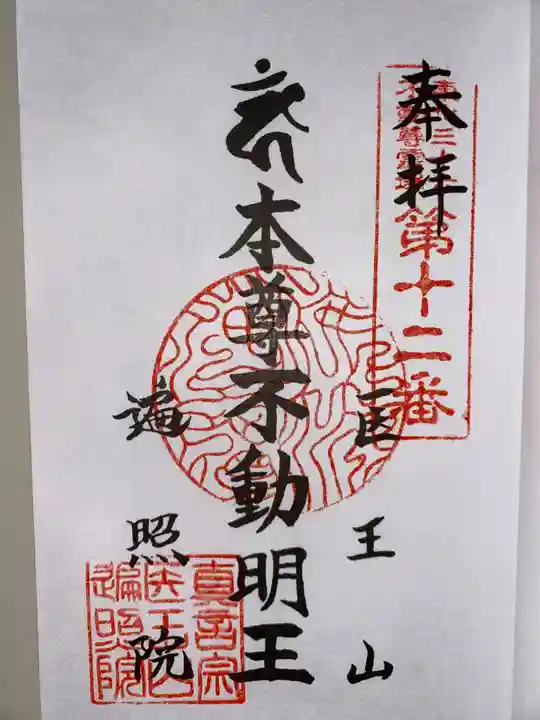 奉拝
第十二番
本尊不動明王
医王山
遍照院
真言宗
医王山
遍照院